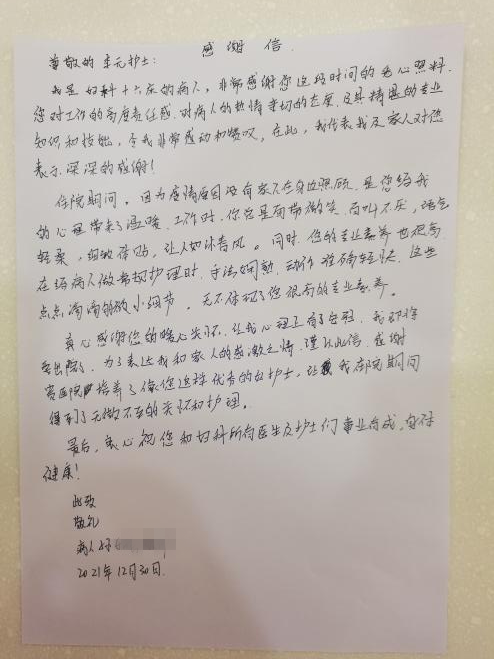 感谢信
尊敬的李元护士:
我是妇科十六床的病人,非常感谢您这段时间的悉心照料.
您对工作的高度责任感.对病人的热情亲切的态度.及其精湛的专业
知识和技能,令我非常感动和赞叹,在此,我代表我及家人对您
表示深深的感谢!
住院期间,因为疫情原因没有家人在身边照顾.是您给我
的心里带来了温暖.工作时.你总是面带微笑.百叫不厌,语气
轻柔,细致体贴,让人如沐春风。同时.您的专业素养也很高
在给病人做常规护理时.手法娴熟.动作准确轻快.这些
点点滴滴的微小细节.无不体现了您很高的专业素养。
真心感谢您的暖心关怀.让我心理上有了安慰.我即将
要出院了.为了表达我和家人的感激之情.谨以此信.感谢
贵医院培养了像您这样优秀的好护士,让我在院期间
得到了无微不至的关怀和护理。
最后,衷心祝您和妇科所有医生及护士们事业有成,身体
健康!
此致
敬礼
病人
2021年12月30日.